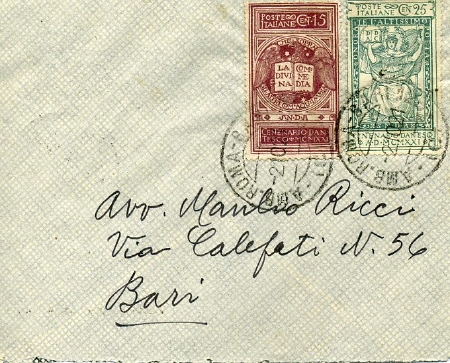 POSTE ITALIANE CENT. 15
LA DIVINA COMMEDIA
CENTENARIO DANTESCO MCMXXI
POSTE ITALIANE CENT 25
L'ALTISSIMO
AMB. ROMA
AMB. ROMA
Avv. Manlio Ricci
Via Calefati N. 56
Bari